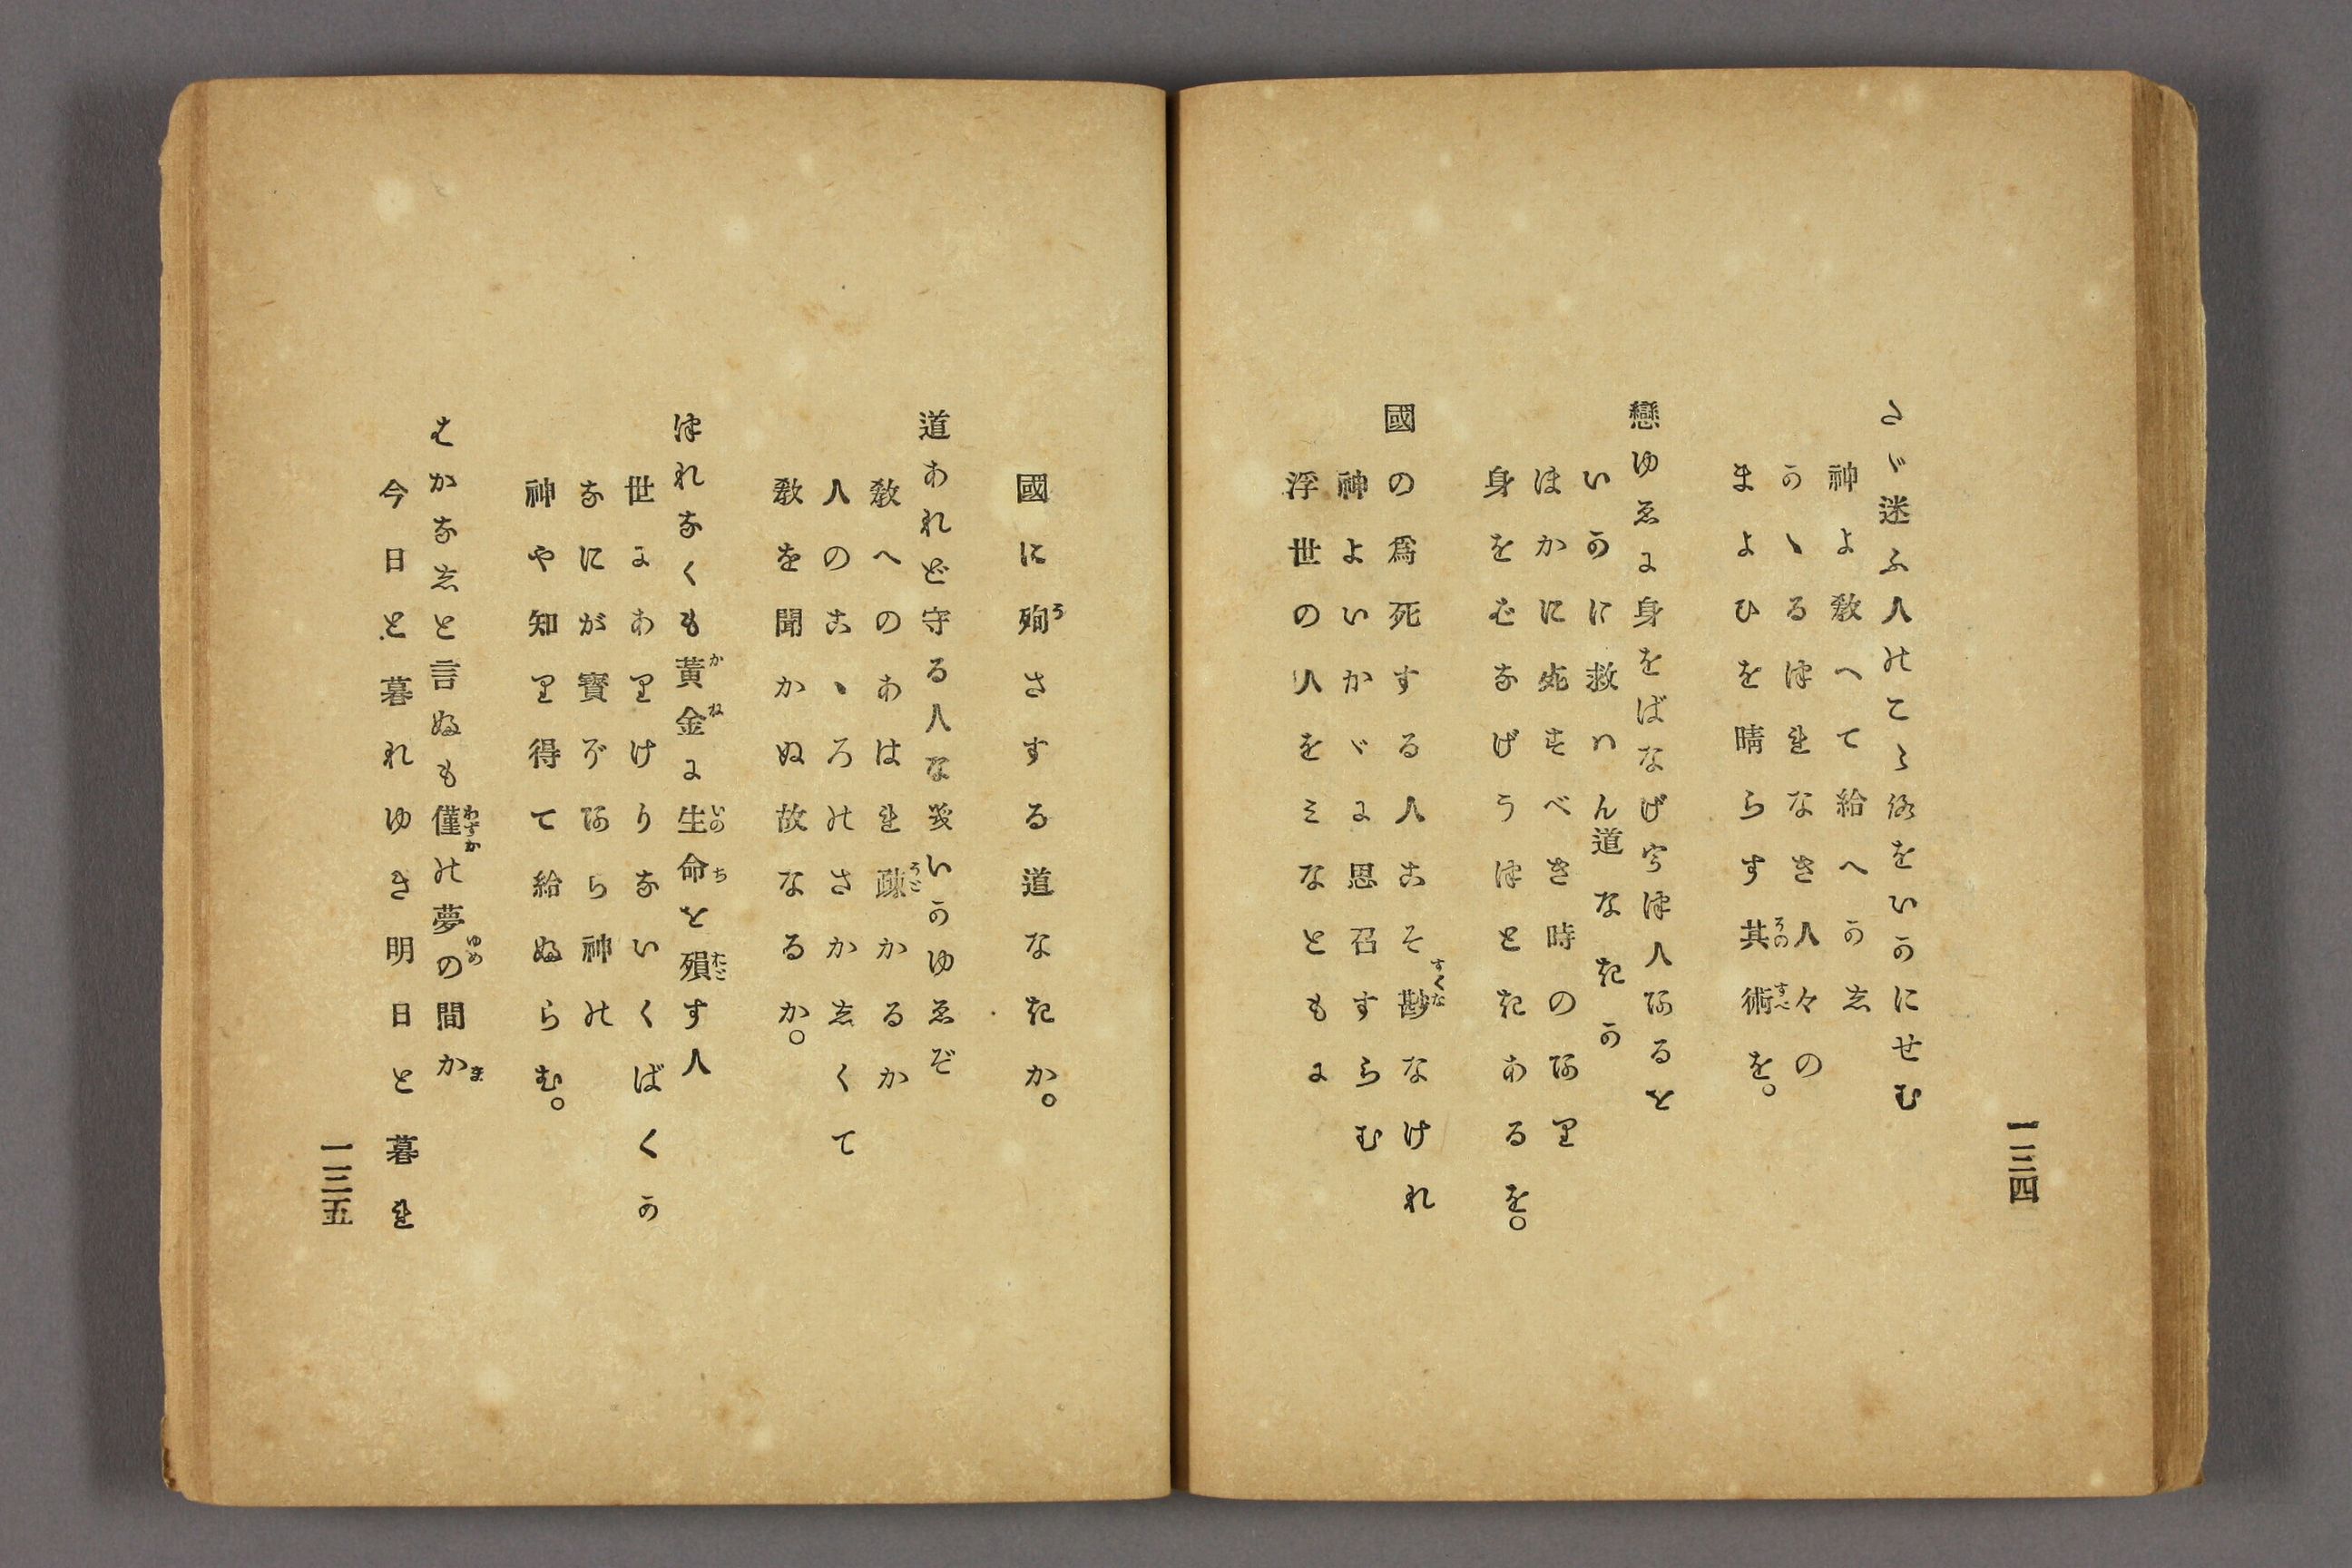 一三四
たゞ迷ふ人のこゝろをいかにせむ
神よ教へて給へかし
かゝるつれなき人々の
まよひを晴らす其術を。
戀ゆゑに身をばなげうつ人あると
いかに救はん道なきか
ほかに死すべき時のあり
身をばなげうつときあるを。
國の爲死する人こそ尠なけれ
神よいかゞに思召すらむ
浮世の人をミなともに
國に殉さする道なきか。
道あれど守る人なきいかゆゑぞ
教へのあはれ疎かるか
人のこゝろのさかしくて
教を聞かぬ故なるか。
つれなくも黄金に生命を殞す人
世にありけりないくばくか
なにが寶ぞあら神の
神や知り得て給ぬらむ。
はかなしと言ぬも僅の夢の間か
今日と暮れゆき明日と暮れ
一三五